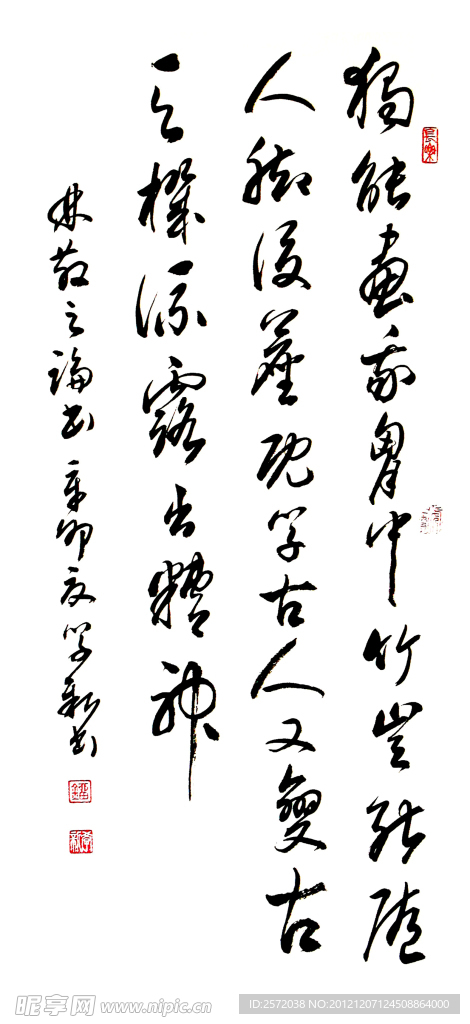 獨能畫我胸中竹豈能随
人脚後塵既学古人又變古
天機流露出精神
林散之論书 辛卯夏学新书
昵享网 www.nipic.cn
ID:2572038 NO:20121207124508864000